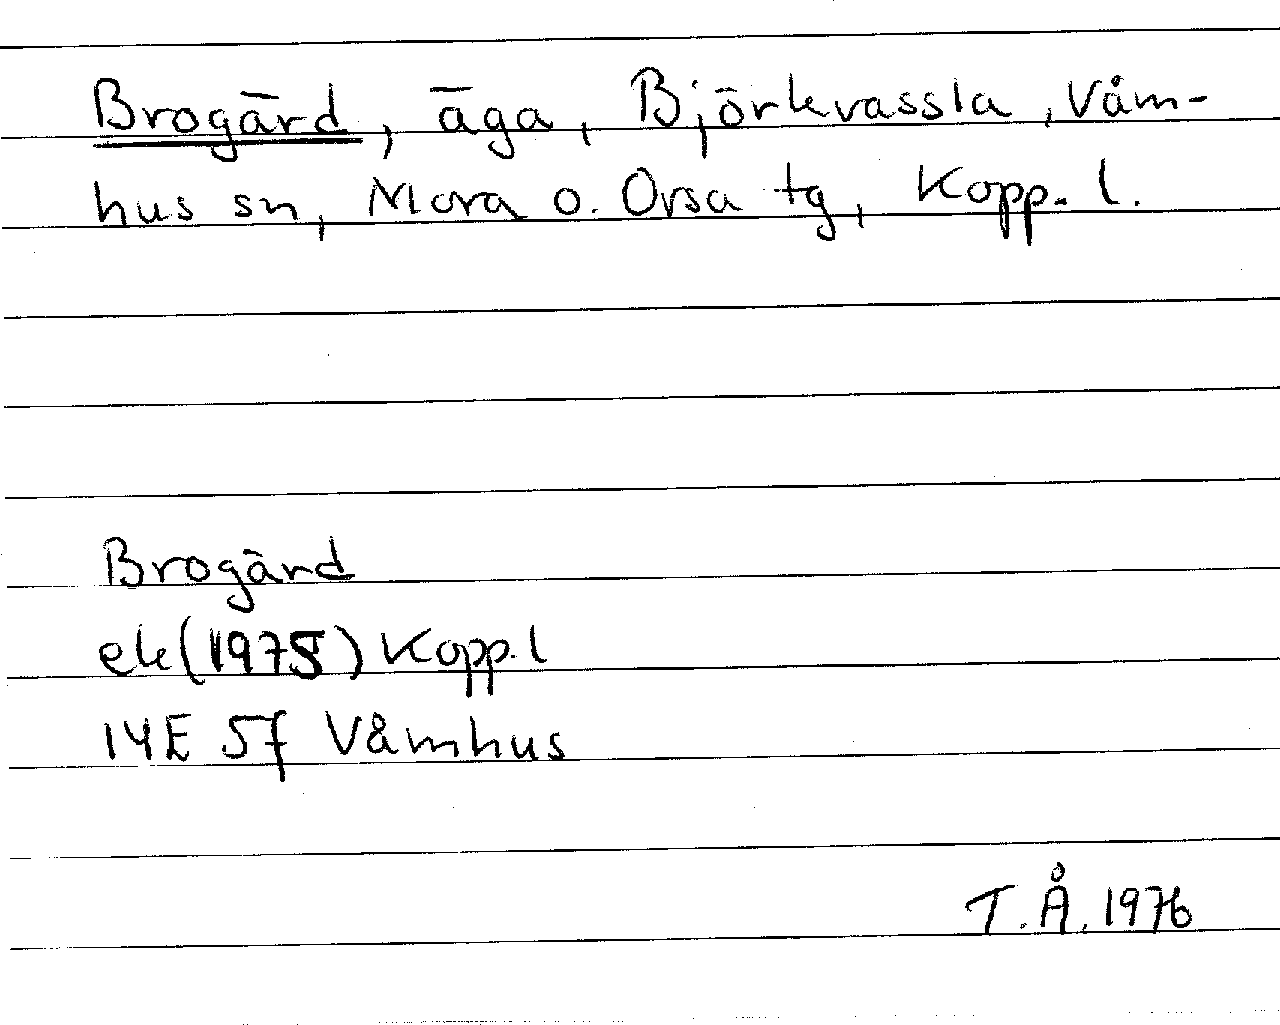 Brogärd, äga, Björkvassla, Våm-
hus sn, Mora o. Orsa tg, Kopp. l.
Brogärd
ek (1975) Kopp. l
14E 5f Våmhus
T.Å. 1976